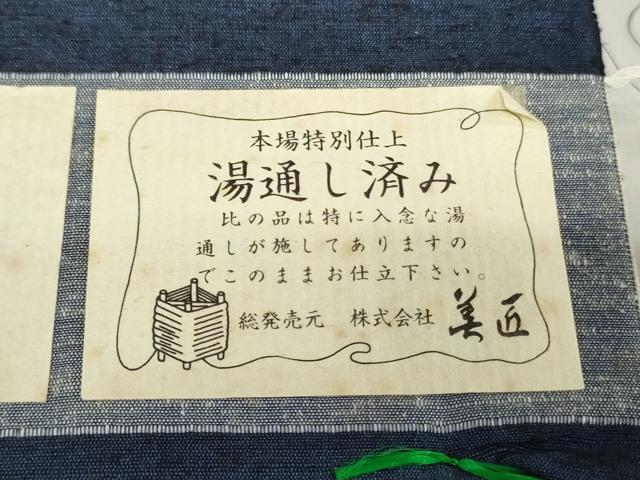 本場特別仕上
湯通し済み
比の品は特に入念な湯
通しが施してありますの
でこのままお仕立下さい。
総発売元 株式会社 美匠